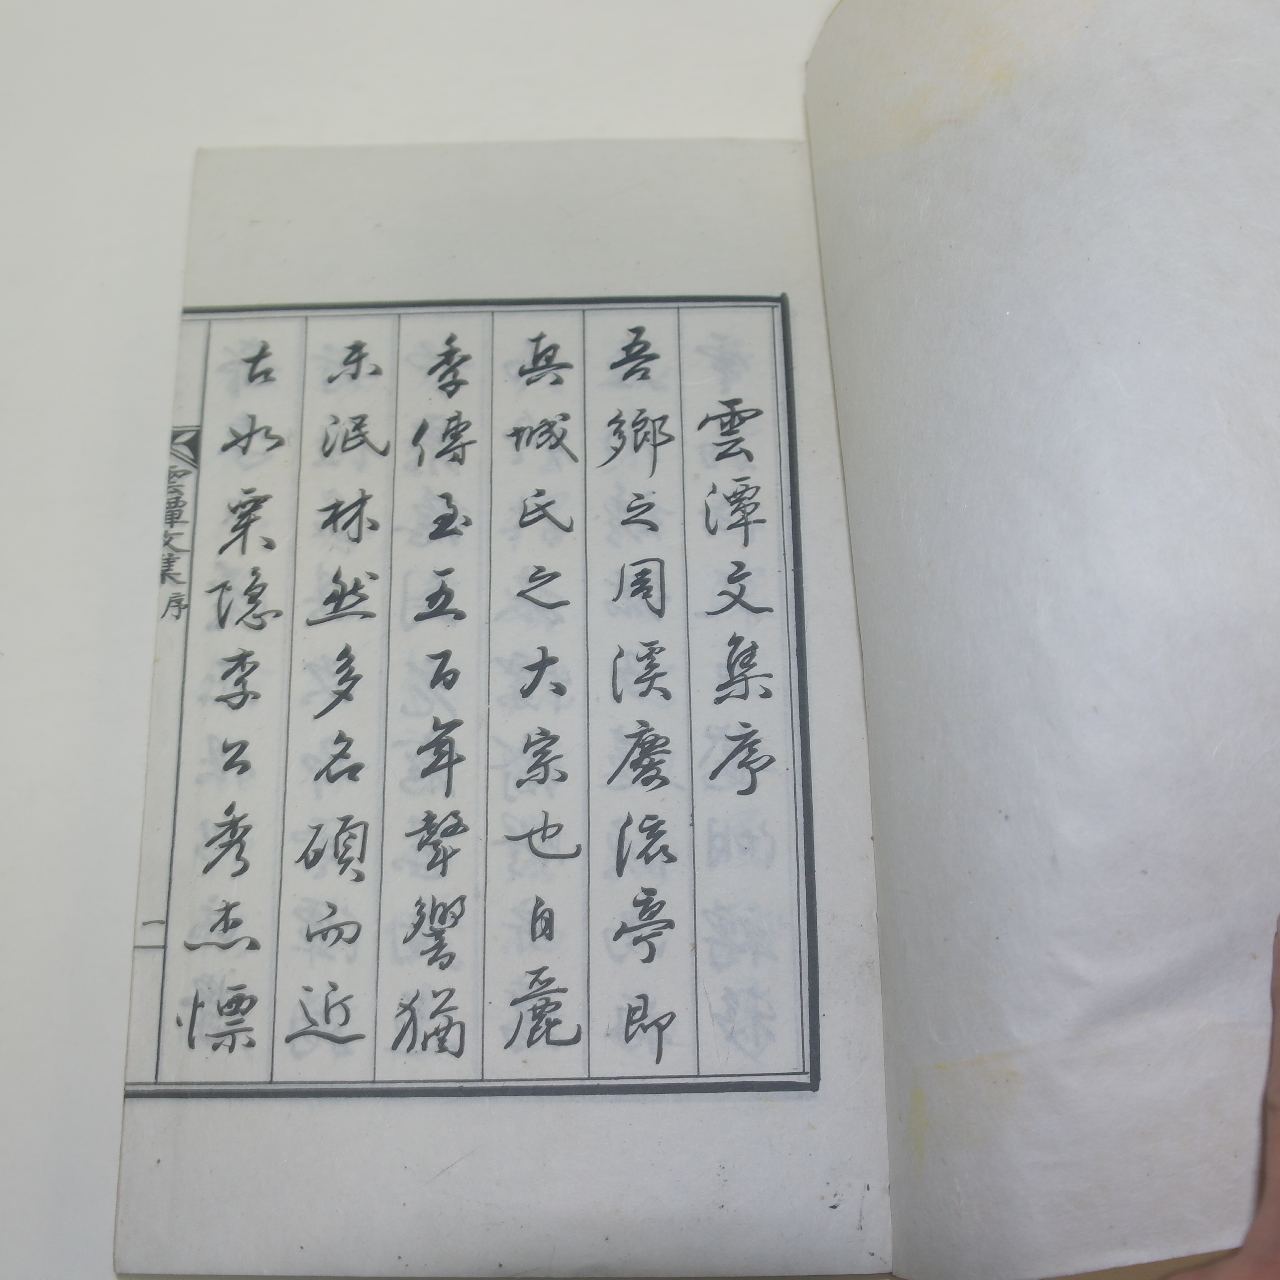 雲潭文集序
吾鄉之周溪慶流亭即
真城氏之大宗也自麗
季傳至五百年聲響猶
未泯林然多名碩而近
古如栗隐李公秀杰慓
雲潭文集 序 一